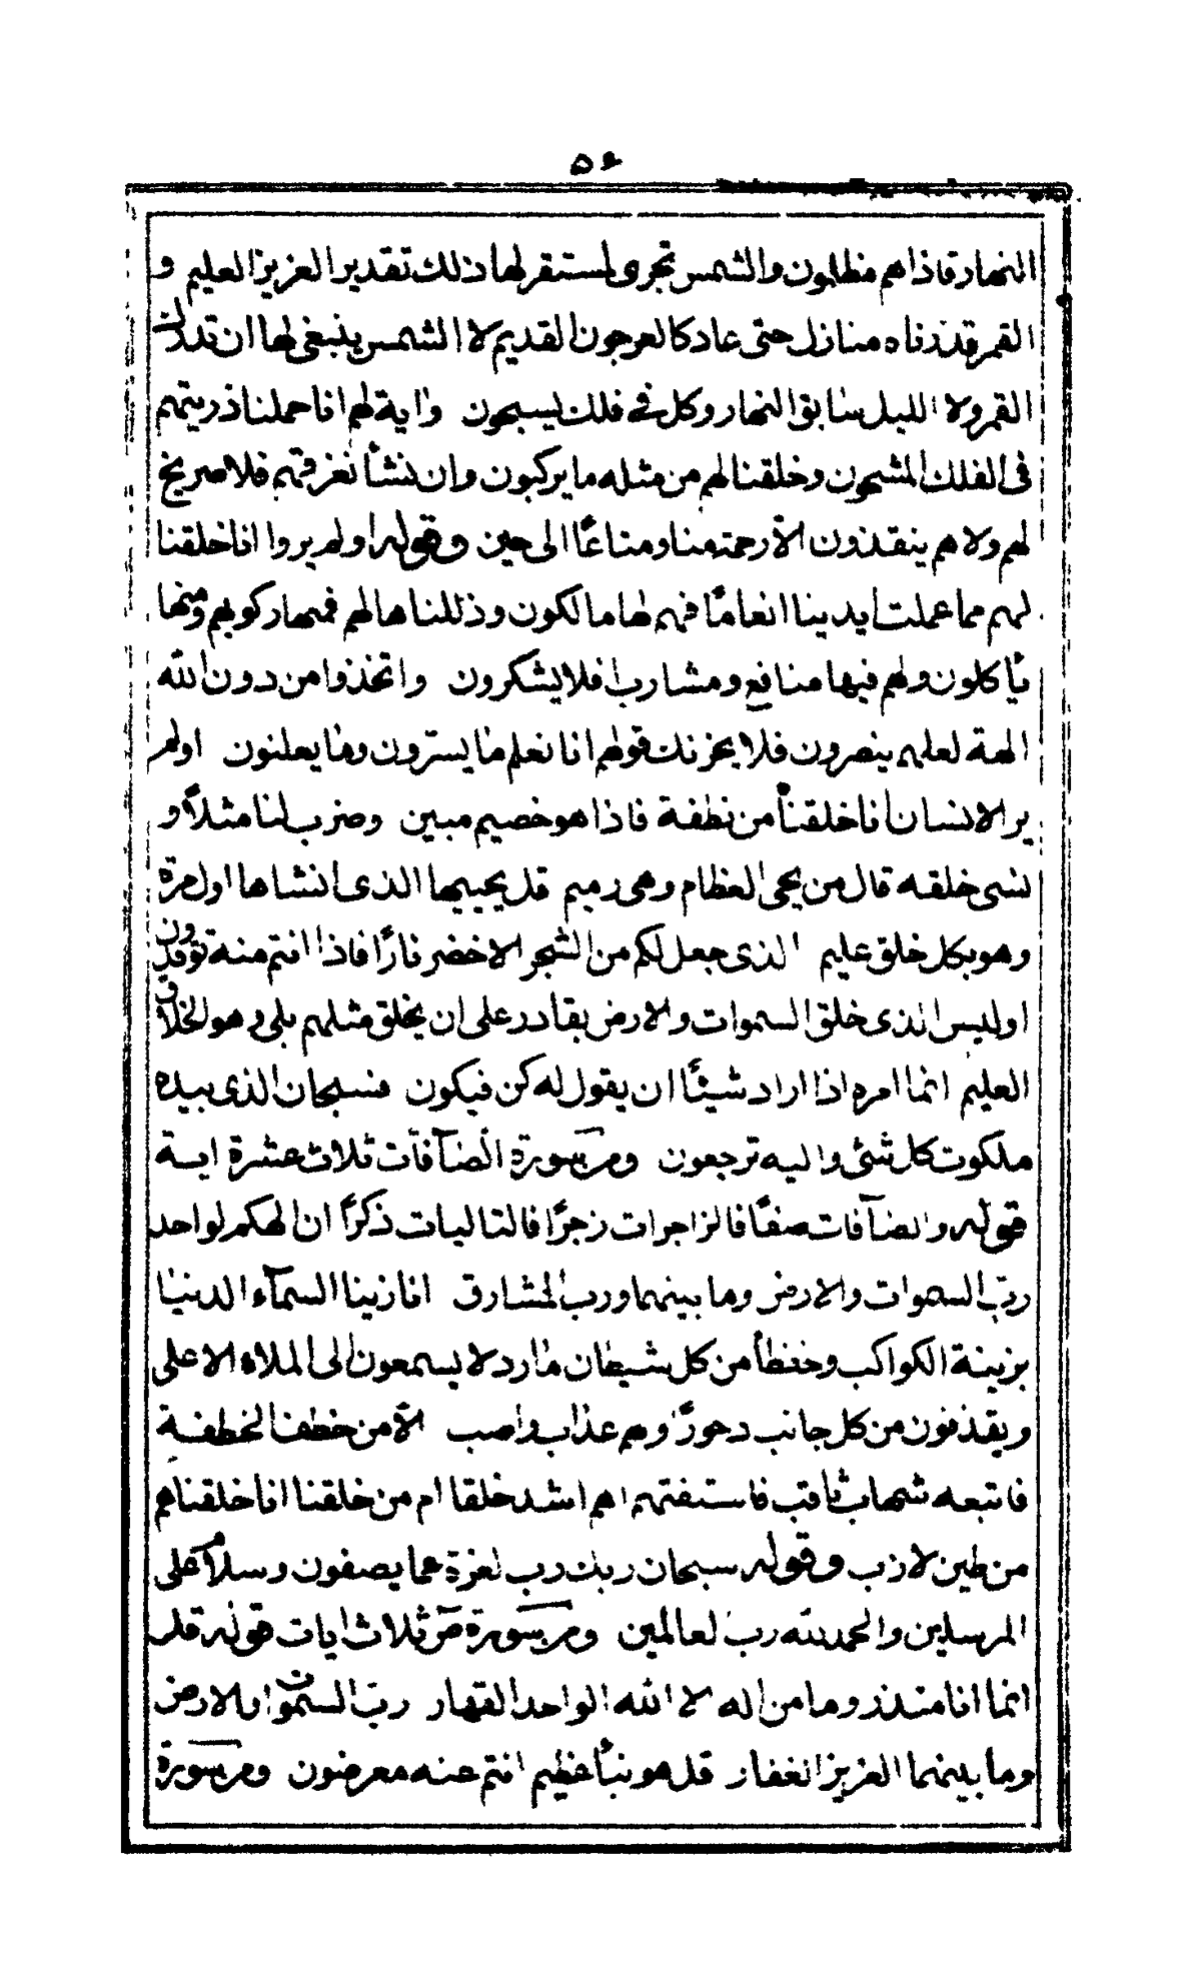 ٥٤
النهار فاذاهم مظلمون والشمس تجرى لمستقر لها ذلك تقدير العزيز العليم و
القمر قدرناه منازل حتى عاد كالعرجون القديم لا الشمس ينبغى لها ان تدرك
القمر ولا الليل سابق النهار وكل فى فلك يسبحون واية لهم انا حملنا ذريتهم
فى الفلك المشحون وخلقنا لهم من مثله ما يركبون وان نشأ نغرقهم فلا صريخ
لهم ولا هم ينقذون الّا رحمة منا ومتاعًا الى حين وقوله اولم يروا انا خلقنا
لهم مما عملت أيدينا انعامًا فهم لها مالكون وذللناها لهم فمنها ركوبهم ومنها
يأكلون ولهم فيها منافع ومشارب افلا يشكرون واتخذوا من دون الله
الهة لعلهم ينصرون فلا يحزنك قولهم انا نعلم ما يسترون وما يعلنون اولم
ير الانسان أنا خلقنا من نطفة فاذا هو خصيم مبين وضرب لنا مثلاً و
نسى خلقه قال من يحى العظام وهى رميم قل يحييها الذى انشاها اول مرة
وهو بكل خلق عليم الذى جعل لكم من الشجر الاخضر نارًا فاذا انتم منه توقدون
اوليس الذى خلق السموات والارض بقادر على ان يخلق مثلهم بلى وهو الخلاق
العليم انما امره اذا اراد شيئًا ان يقول له كن فيكون فسبحان الذى بيده
ملكوت كل شئ واليه ترجعون ومن سورة الصآفّات ثلاث عشرة اية
قوله والصآفات صفًا فالزاجرات زجرًا فالتاليات ذكرًا ان الهكم لواحد
ربّ السموات والارض وما بينهما ورب المشارق انا زينا السمآء الدنيا
بزينة الكواكب وحفظاً من كل شيطان مارد لا يسمعون الى الملاء الاعلى
ويقذفون من كل جانب دحورًا ولهم عذاب واصب الّا من خطف الخطفة
فاتبعه شهاب ثاقب فاستفتهم اهم اشد خلقا ام من خلقنا انا خلقناهم
من طين لازب وقوله سبحان ربك رب العزة عما يصفون وسلام على
المرسلين والحمد لله رب العالمين ومن سورة صۤ ثلاث ايات قوله قل
انما انا منذر وما من اله الا الله الواحد القهار ربّ السموات والارض
وما بينهما العزيز الغفار قل هو نبأ عظيم انتم عنه معرضون ومن سورة